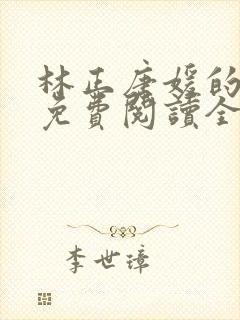 林正唐媛的
免費閱讀全
李世璋